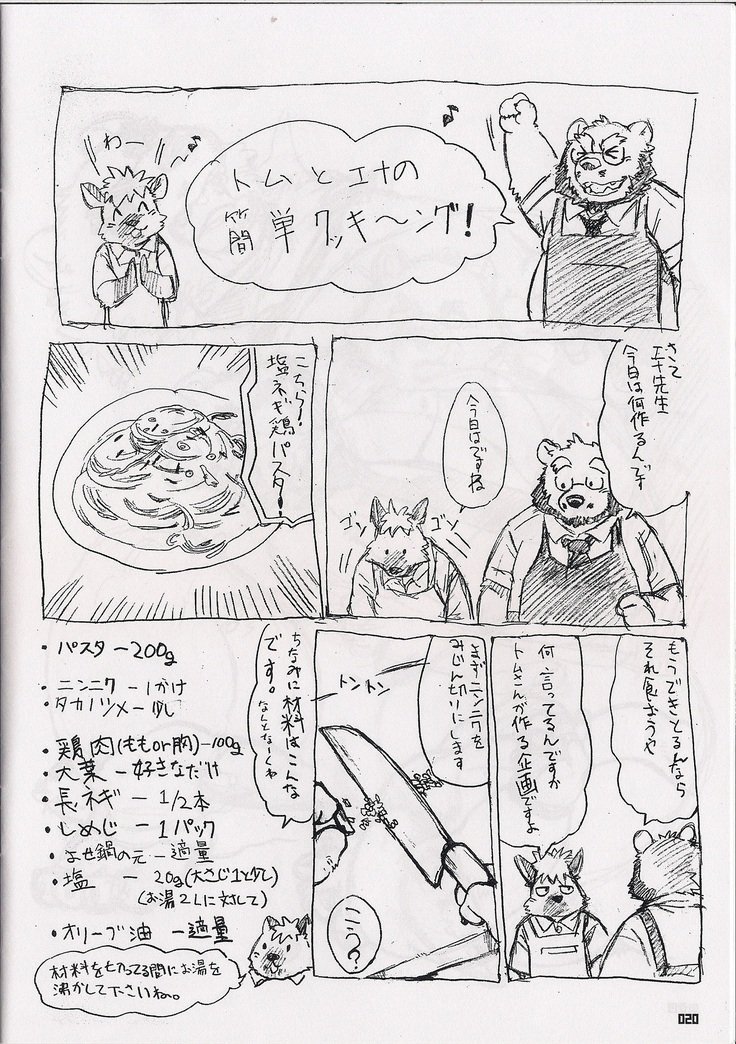 わー
トムとエナの
簡単クッキ〜ング!
さて
エナ先生
今日は何作るんです
今日はですね
ゴソ
ゴソ
こちら!
塩ネギ鶏パスタ!
もうできとるんなら
それ食おうや
何言ってるんですか
トムさんが作る企画ですよ
まずニンニクを
みじん切りにします
トントン
こう?
ちなみに材料はこんな
です。
なんとなーくね
・パスタ ー200g
・ニンニク ー1かけ
・タカノツメー少し
・鶏肉(ももor胸)ー100g
・大葉 ー好きなだけ
・長ネギ ー 1/2本
・しめじ ー 1パック
・よせ鍋の元 ー適量
・塩 ー 20g(大さじ1と少し)
(お湯2Lに対して)
・オリーブ油 ー適量
材料を切ってる間にお湯を
沸かして下さいね。
020